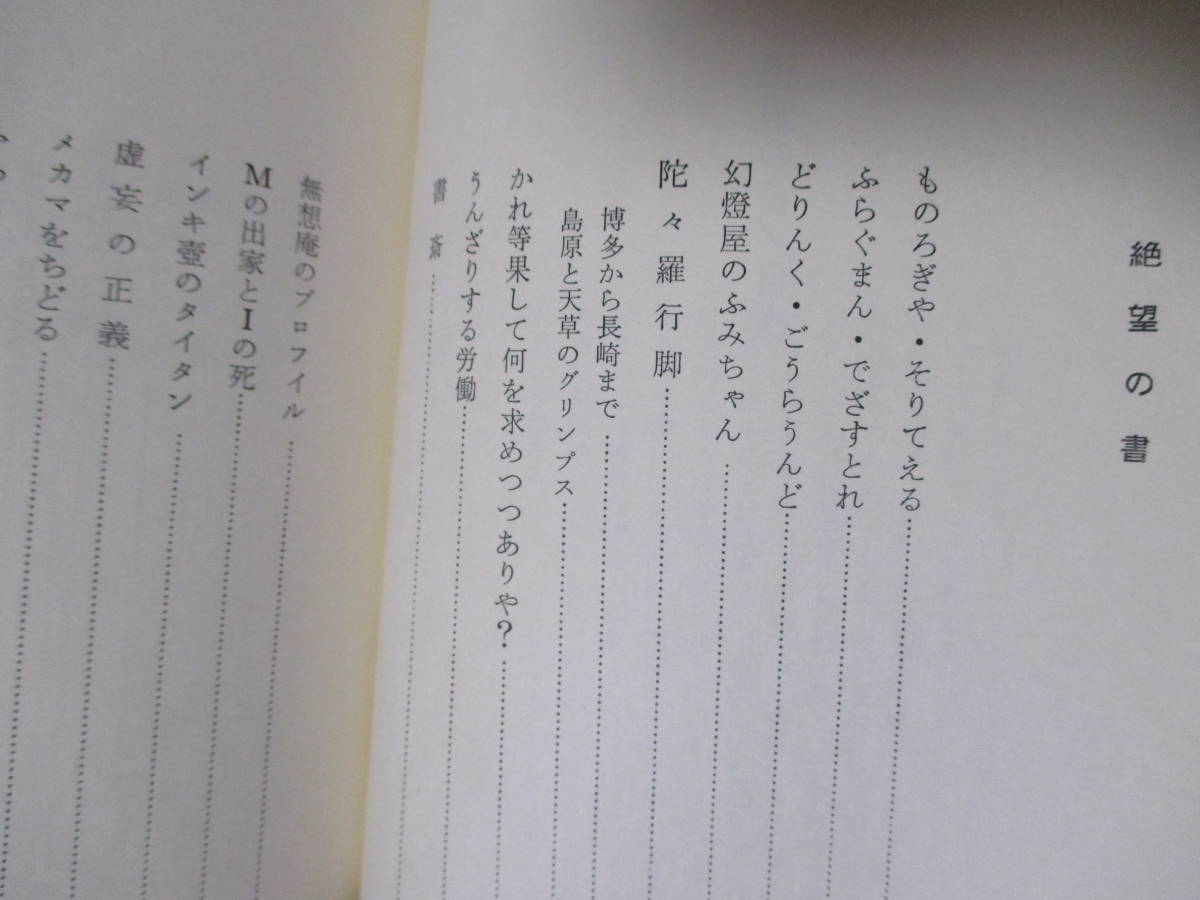 絶望の書
ものろぎや・そりてえる……………
ふらぐまん・でざすとれ……………
どりんく・ごうらうんど……………
幻燈屋のふみちゃん……………
陀々羅行脚……………
博多から長崎まで……………
島原と天草のグリンプス……………
かれ等果して何を求めつつありや?……………
うんざりする労働……………
書斎……………
無想庵のプロフイル……………
Mの出家とIの死……………
インキ壺のタイタン……………
虚妄の正義……………
メカマをちどる……………